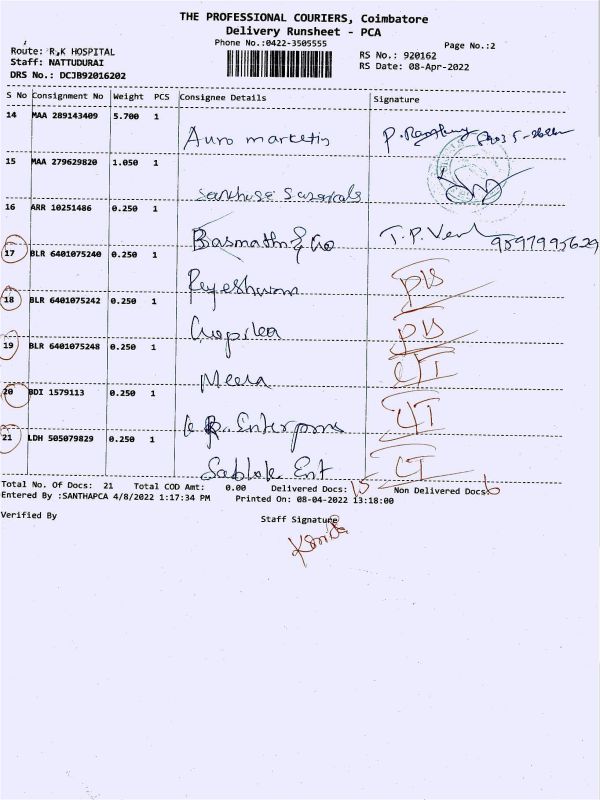 THE PROFESSIONAL COURIERS, Coimbatore
Delivery Runsheet - PCA
Phone No.:0422-3505555
Page No.:2
Route: R.K HOSPITAL
RS No.: 920162
Staff: NATTUDURAI
RS Date: 08-Apr-2022
DRS No.: DCJB92016202
S No Consignment No Weight PCS Consignee Details Signature
14 MAA 289143409 5.700 1
Auro marketin
15 MAA 279629820 1.050 1
16 ARR 10251486 0.250 1
Basmathi & Co T.P. 9597995629
17 BLR 6401075240 0.250 1
18 BLR 6401075242 0.250 1
19 BLR 6401075248 0.250 1
Meera
20 BDI 1579113 0.250 1
21 LDH 505079829 0.250 1
Sablok Ent
Total No. Of Docs: 21 Total COD Amt: 0.00 Delivered Docs: 15 Non Delivered Docs: 6
Entered By :SANTHAPCA 4/8/2022 1:17:34 PM Printed On: 08-04-2022 13:18:00
Verified By Staff Signature